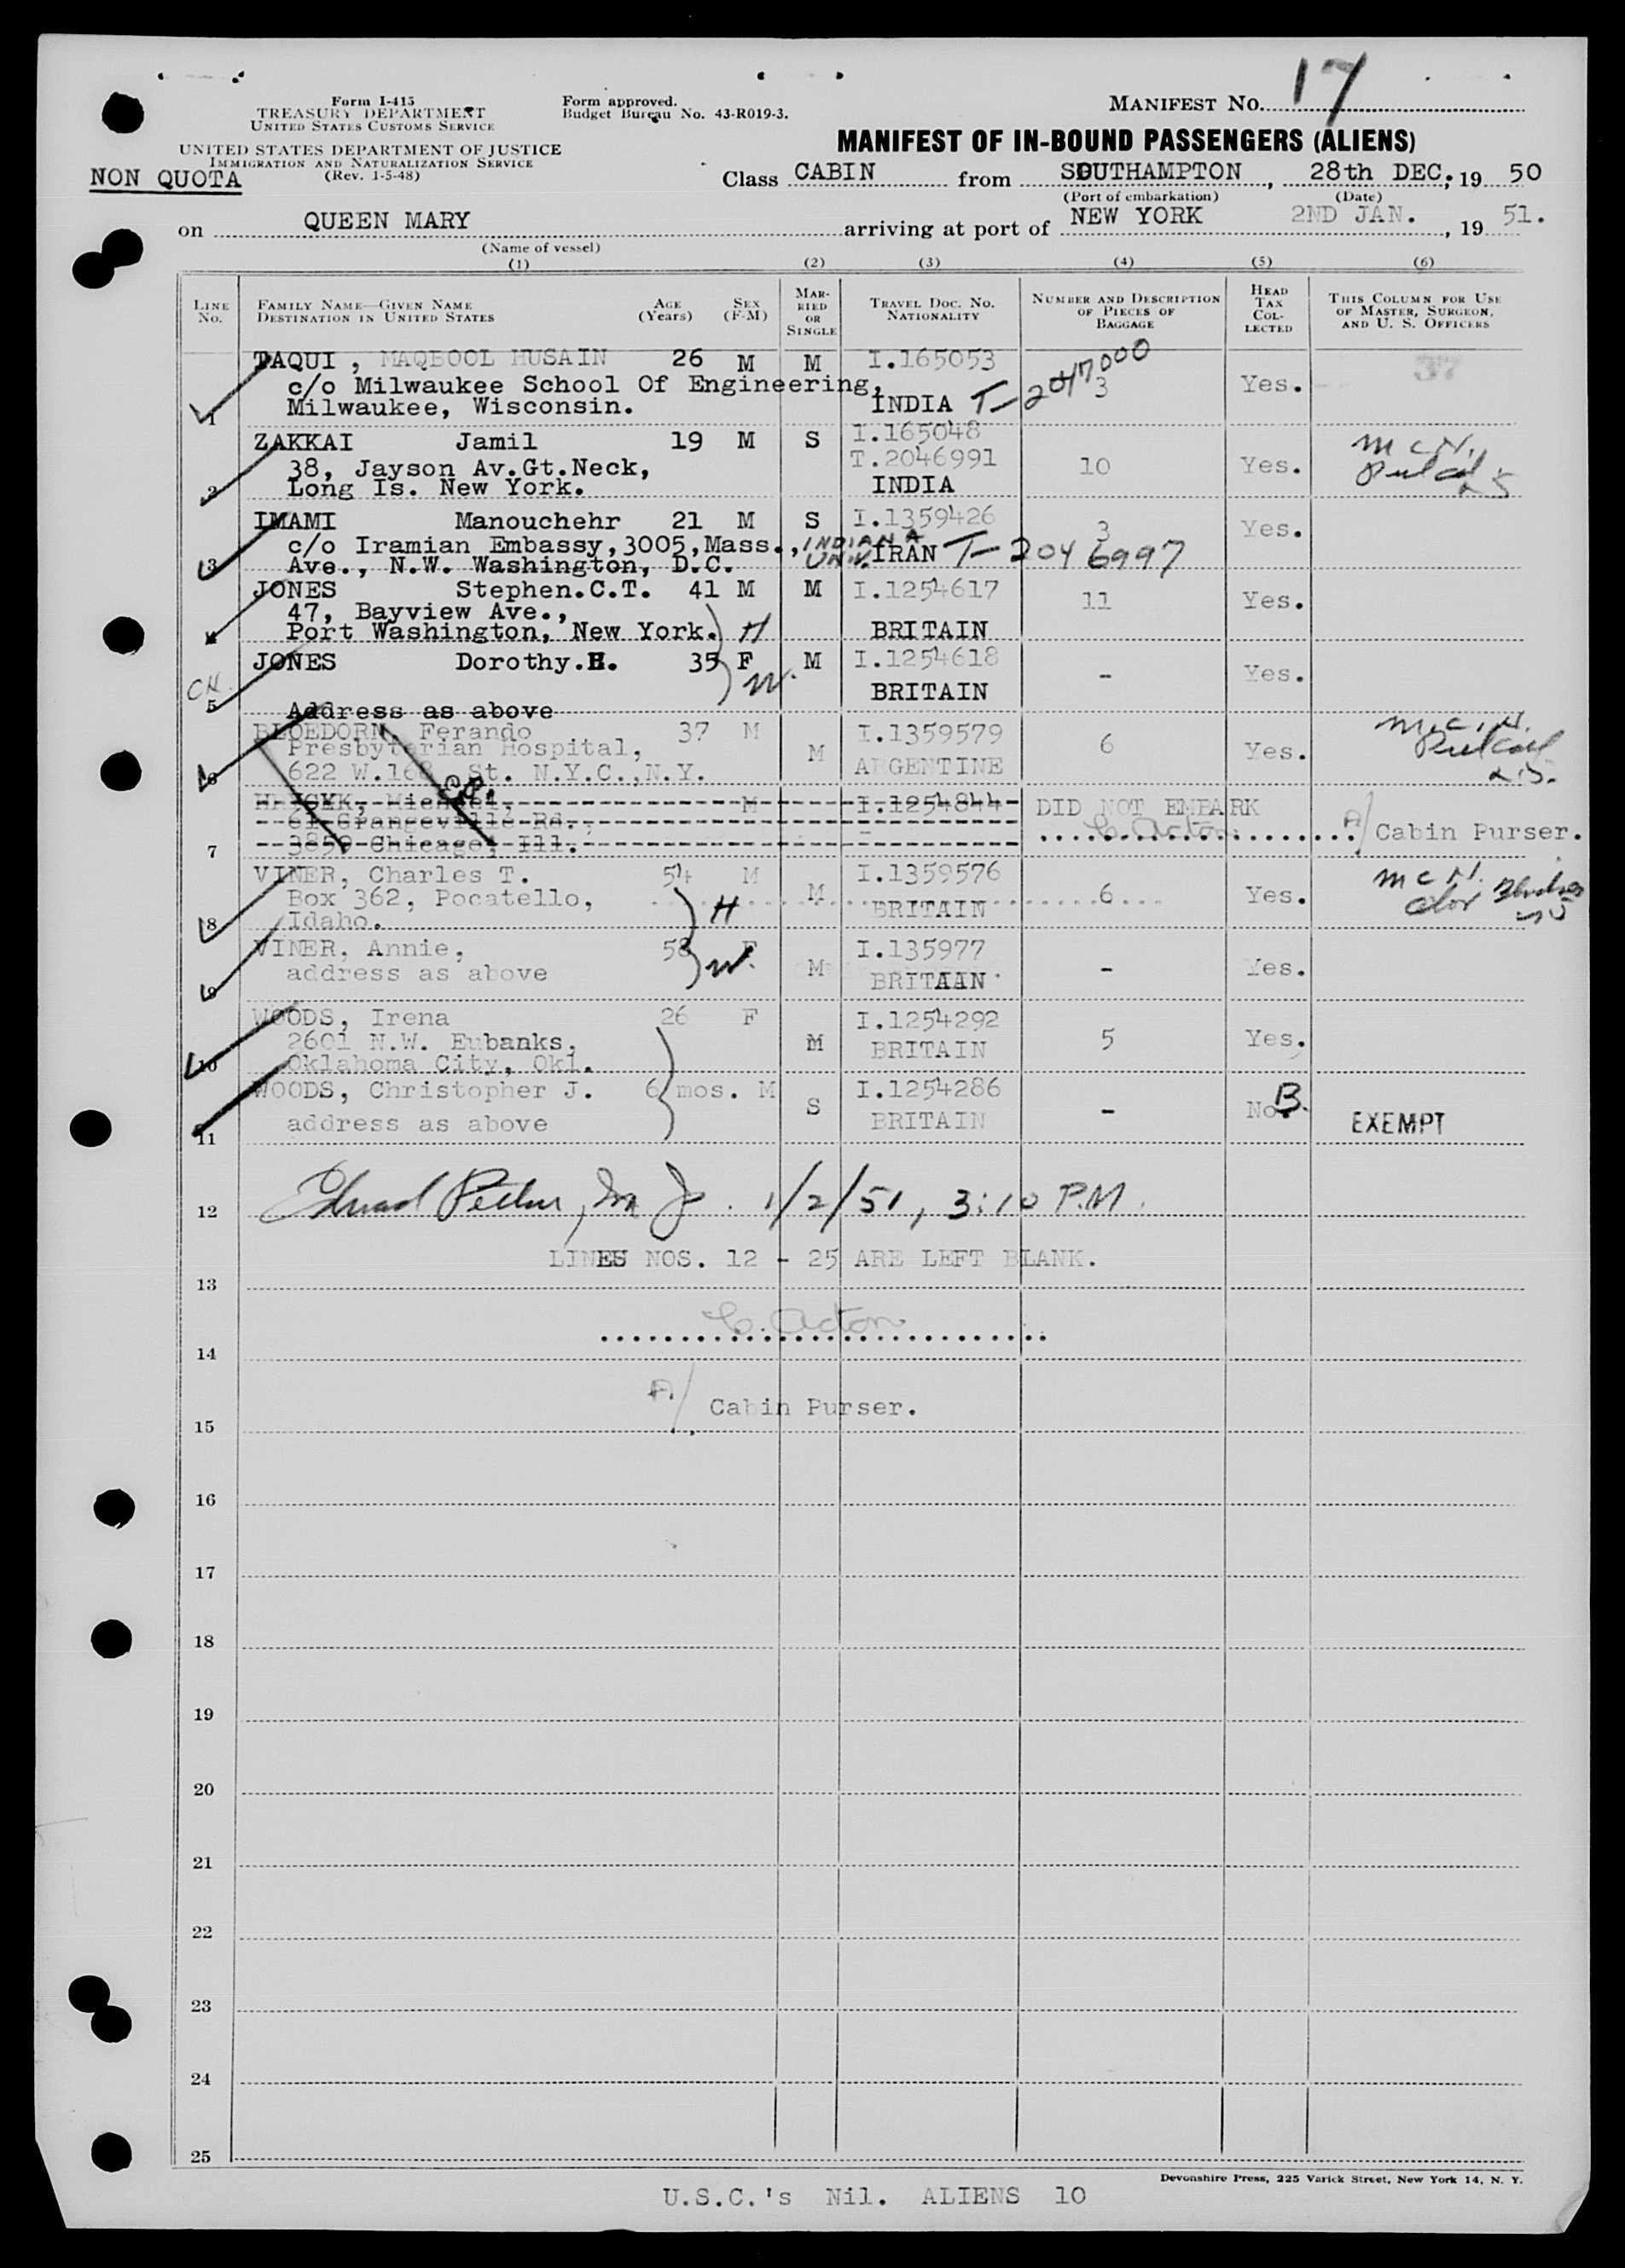 Form I-415
TREASURY DEPARTMENT
UNITED STATES CUSTOMS SERVICE
UNITED STATES DEPARTMENT OF JUSTICE
IMMIGRATION AND NATURALIZATION SERVICE
(Rev. 1-5-48)
NON QUOTA
Form approved.
Budget Bureau No. 43-R019-3.
MANIFEST NO. 17
MANIFEST OF IN-BOUND PASSENGERS (ALIENS)
Class CABIN from SOUTHAMPTON, 28th DEC; 19 50
(Port of embarkation) (Date)
on QUEEN MARY arriving at port of NEW YORK 2ND JAN. , 19 51.
(Name of vessel)
(1) (2) (3) (4) (5) (6)
LINE NO. FAMILY NAME—GIVEN NAME DESTINATION IN UNITED STATES AGE (Years) SEX (F-M) MARRIED OR SINGLE TRAVEL DOC. NO. NATIONALITY NUMBER AND DESCRIPTION OF PIECES OF BAGGAGE HEAD TAX COLLECTED THIS COLUMN FOR USE OF MASTER, SURGEON, AND U. S. OFFICERS
TAQUI , MAQBOOL HUSAIN 26 M M I.165053 37
c/o Milwaukee School Of Engineering, 3 Yes.
1 Milwaukee, Wisconsin. INDIA T-2047000
ZAKKAI Jamil 19 M S I.165048 McN.
38, Jayson Av.Gt.Neck, T.2046991 10 Yes.
2 Long Is. New York. INDIA
IMAMI Manouchehr 21 M S I.1359426 3 Yes.
c/o Iramian Embassy,3005,Mass., INDIANA UNIV. IRAN T-2046997
3 Ave., N.W. Washington, D.C.
JONES Stephen.C.T. 41 M M I.1254617 11 Yes.
47, Bayview Ave.,
4 Port Washington, New York. H BRITAIN
JONES Dorothy.H. 35 F M I.1254618 - Yes.
W. BRITAIN
5 Address as above
BLOEDORN, Ferando 37 M M I.1359579 6 Yes. McN.
Presbyterian Hospital,
6 622 W.168 St. N.Y.C.,N.Y. ARGENTINE
Michael, M I.1254844 DID NOT EMBARK
61 Grangeville Rd. C. Acton
7 3859 Chicago, Ill. A/ Cabin Purser.
VINER, Charles T. 54 M M I.1359576 6 Yes. McN.
Box 362, Pocatello, H BRITAIN
8 Idaho.
VINER, Annie, 58 F M I.135977 - Yes.
address as above W. BRITAAN
9
WOODS, Irena 26 F M I.1254292 5 Yes.
2601 N.W. Eubanks, BRITAIN
10 Oklahoma City, Okl.
WOODS, Christopher J. 6 mos. M S I.1254286 - No. B.
address as above BRITAIN EXEMPT
11
12 1/2/51, 3:10 P.M.
LINES NOS. 12 - 25 ARE LEFT BLANK.
13
C. Acton
14
A/ Cabin Purser.
15
16
17
18
19
20
21
22
23
24
25
Devonshire Press, 225 Varick Street, New York 14, N. Y.
U.S.C.'s Nil. ALIENS 10